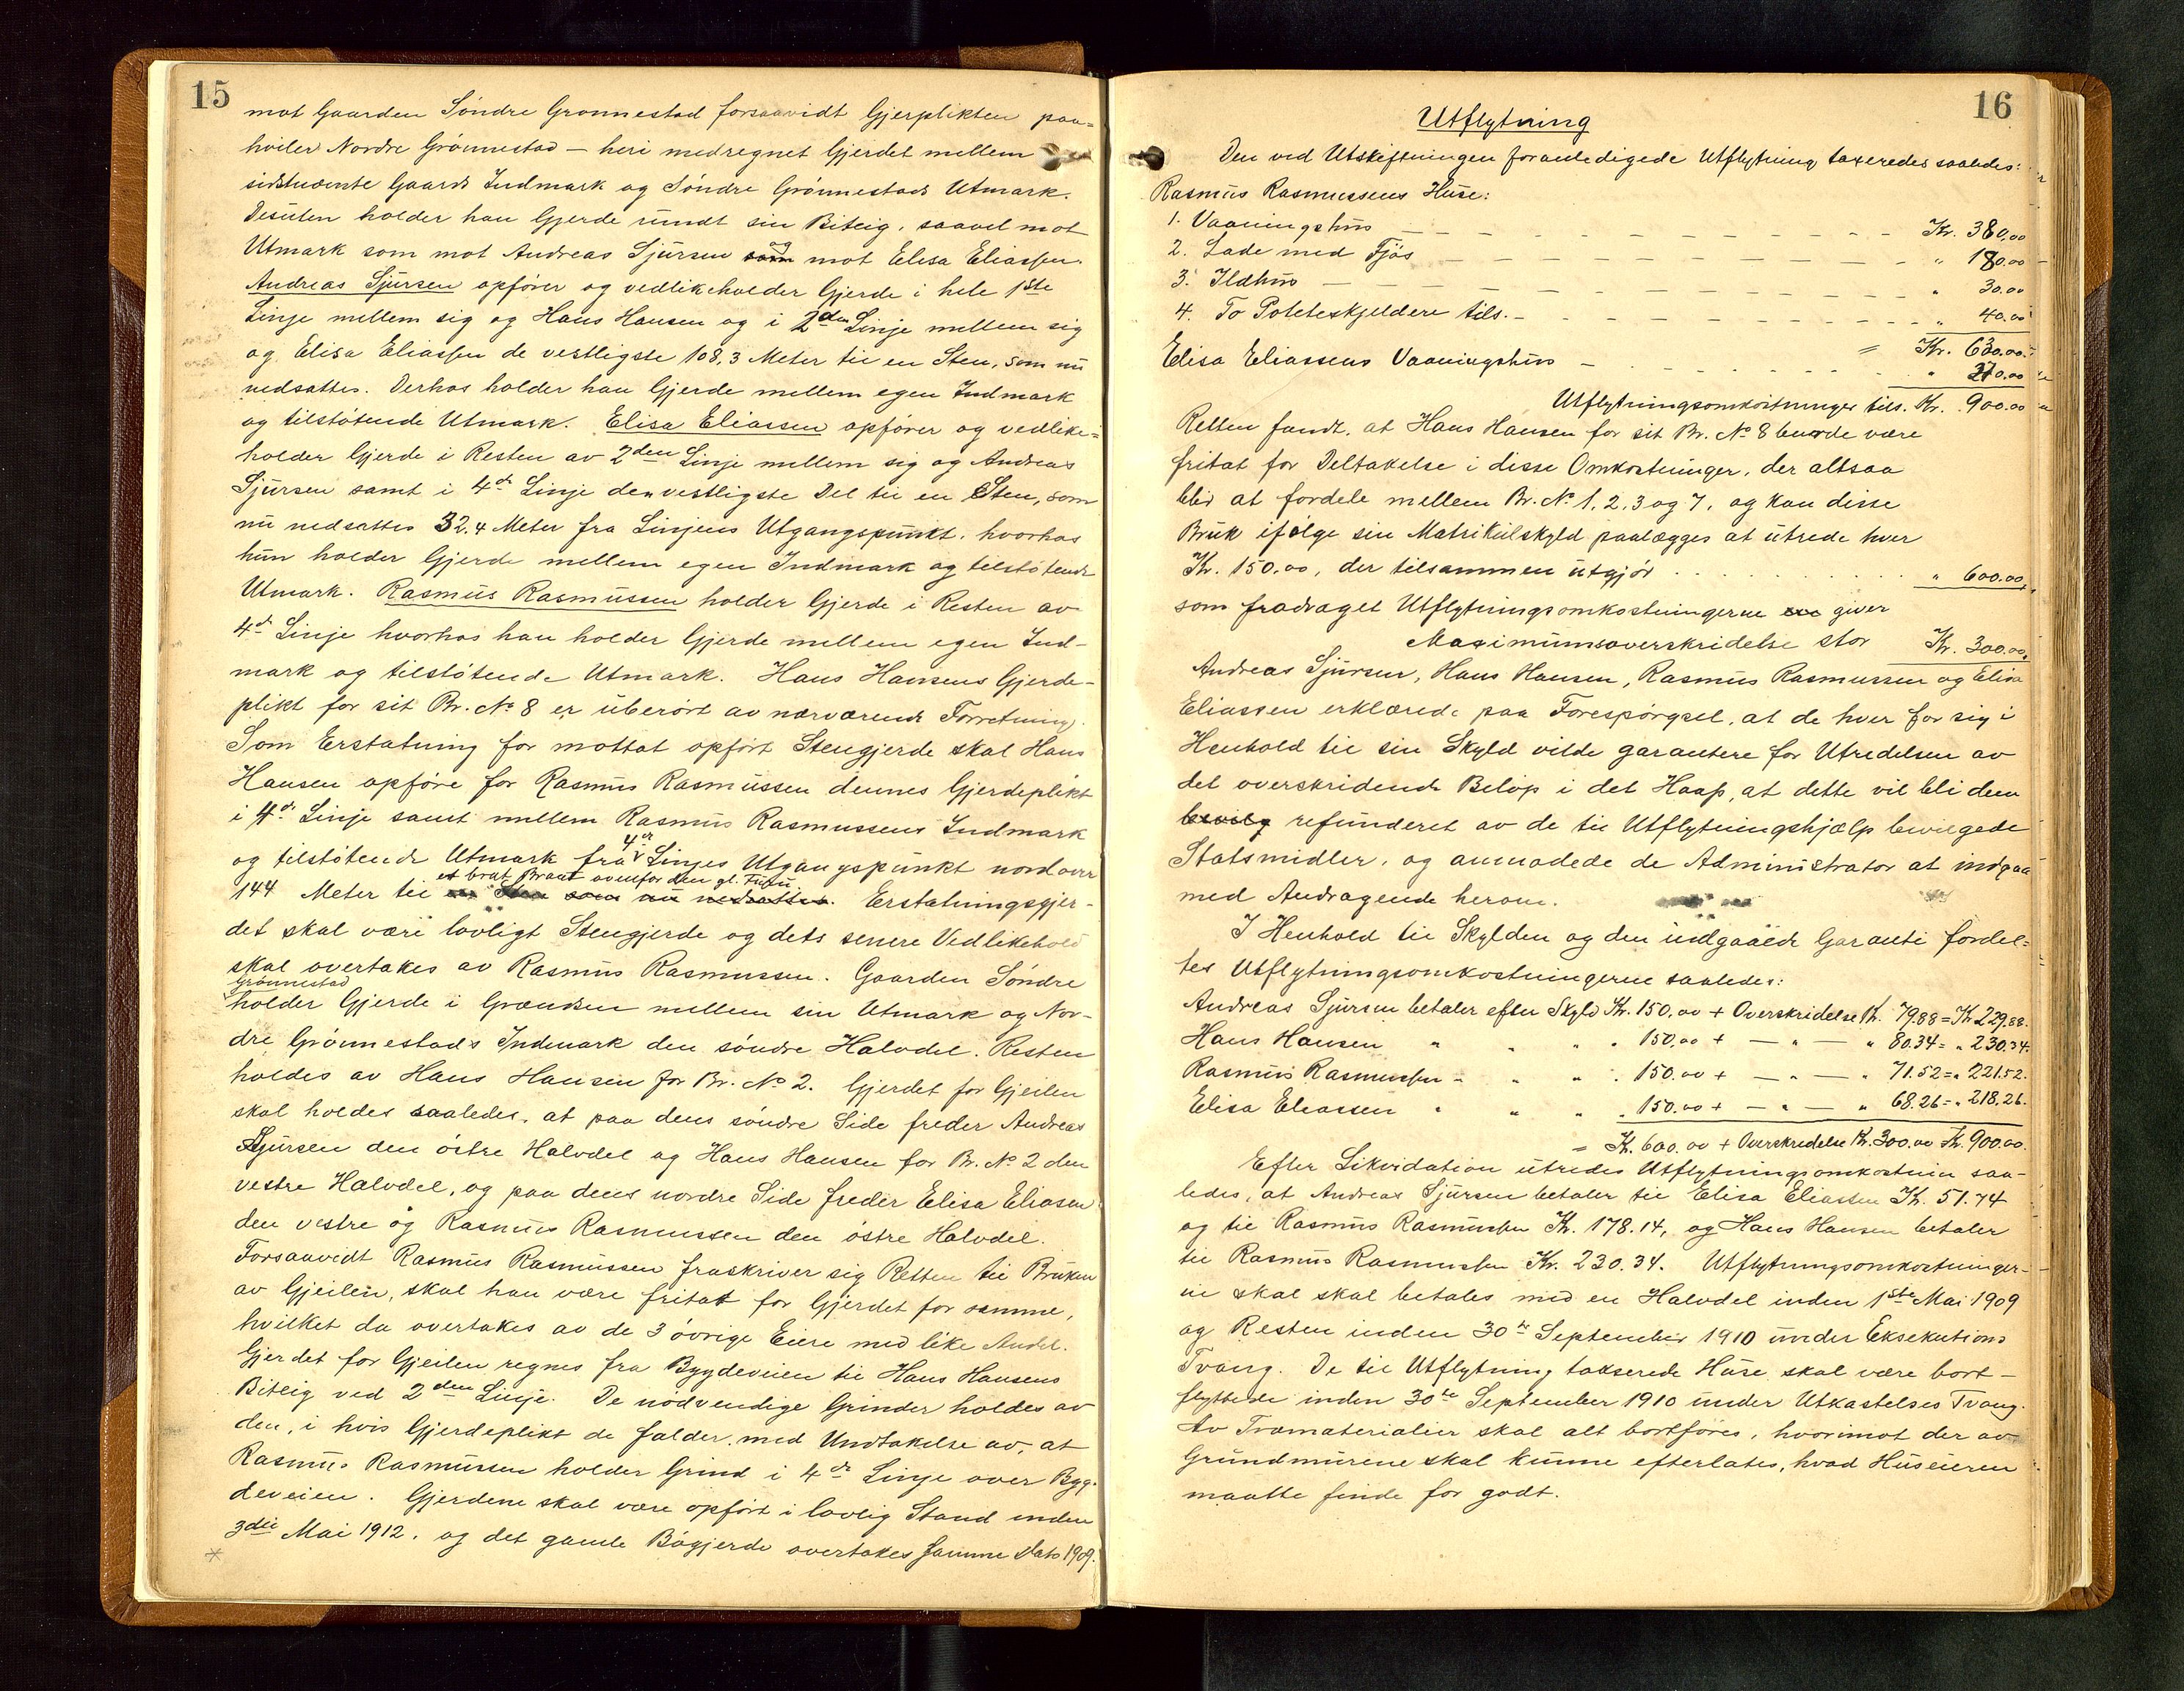 15
mot Gaarden Søndre Grønnestad forsaavidt Gjerplikten paa=
hviler Nordre Grønnestad — heri medregnet Gjerdet mellem
sidstnævnte Gaards Indmark og Søndre Grønnestads Utmark.
Desuten holder han Gjerde rundt sin Biteig, saavel mot
Utmark som mot Andreas Sjursen og mot Elisa Eliassen.
Andreas Sjursen opfører og vedlikeholder Gjerde i hele 1ste
Linje mellem sig og Hans Hansen og i 2den Linje mellem sig
og Elisa Eliassen de vestligste 108,3 Meter til en Sten, som nu
nedsattes. Derhos holder han Gjerde mellem egen Indmark
og tilstøtende Utmark. Elisa Eliassen opfører og vedlike=
holder Gjerde i Resten av 2den Linje mellem sig og Andreas
Sjursen samt i 4de Linje den vestligste Del til en Sten, som
nu nedsattes 32.4 Meter fra Linjens Utgangspunkt, hvorhos
hun holder Gjerde mellem egen Indmark og tilstøtende
Utmark. Rasmus Rasmussen holder Gjerde i Resten av
4de Linje hvorhos han holder Gjerde mellem egen Ind-
mark og tilstøtende Utmark. Hans Hansens Gjerde-
plikt for sit Br. No 8 er uberørt av nærværende Forretning.
Som Erstatning for mottat opført Stengjerde skal Hans
Hansen opføre for Rasmus Rasmussen dennes Gjerdeplikt
i 4de Linje samt mellem Rasmus Rasmussens Indmark
og tilstøtende Utmark fra 4de Linjes Utgangspunkt nordover
144 Meter til et brat Braut ovenfor den gl. Tufu. Erstatningsgjer-
det skal være lovligt Stengjerde og dets senere Vedlikehold
skal overtakes av Rasmus Rasmussen. Gaarden Søndre
Grønnestad
holder Gjerde i Grændsen mellem sin Utmark og Nor-
dre Grønnestads Indmark den søndre Halvdel. Resten
holdes av Hans Hansen for Br. No 2. Gjerdet for Gjeilen
skal holdes saaledes, at paa dens søndre Side freder Andreas
Sjursen den østre Halvdel og Hans Hansen for Br. No 2 den
vestre Halvdel, og paa dens nordre Side freder Elisa Eliassen
den vestre og Rasmus Rasmussen den østre Halvdel.
Forsaavidt Rasmus Rasmussen fraskriver sig Retten til Bruken
av Gjeilen, skal han være fritat for Gjerdet for samme,
hvilket da overtakes av de 3 øvrige Eiere med like Andel.
Gjerdet for Gjeilen regnes fra Bygdeveien til Hans Hansens
Biteig ved 2den Linje. De nødvendige Grinder holdes av
den, i hvis Gjerdeplikt de falder, med Undtakelse av, at
Rasmus Rasmussen holder Grind i 4de Linje over Byg-
deveien. Gjerdene skal være opført i lovlig Stand inden
3die Mai 1912, og det gamle Bøgjerde overtakes samme Dato 1909.
16
Utflytning
Den ved Utskiftningen foranledigede Utflytning taxeredes saaledes:
Rasmus Rasmussens Huse:
1. Vaaningshus — Kr. 380,00
2. Lade med Fjøs — " 180.00
3. Ildhus — " 30.00
4. To Poteteskjeldere tils. — " 40.00
= Kr. 630.00.
Elisa Eliassens Vaaningshus — " 270.00
Utflytningsomkostninger tils. Kr. 900.00
Retten fandt, at Hans Hansen for sit Br. No 8 burde være
fritat for Deltakelse i disse Omkostninger, der altsaa
blir at fordele mellem Br. No 1, 2, 3 og 7, og kan disse
Bruk ifølge sin Matrikulskyld paalægges at utrede hver
Kr. 150.00, der tilsammen utgjør . . . " 600.00,
som fradraget Utflytningsomkostningerne giver
Maximumsoverskridelse stor Kr. 300.00.
Andreas Sjursen, Hans Hansen, Rasmus Rasmussen og Elisa
Eliassen erklærede paa Forespørgsel, at de hver for sig i
Henhold til sin Skyld vilde garantere for Utredelsen av
det overskridende Beløp i det Haap, at dette vil bli dem
refunderet av de til Utflytningshjælp bevilgede
Statsmidler, og anmodede de Administrator at indgaa
med Andragende herom.
I Henhold til Skylden og den indgaaede Garanti fordel=
tes Utflytningsomkostningerne saaledes:
Andreas Sjursen betaler efter Skyld Kr. 150,00 + Overskridelse Kr. 79.88 = Kr. 229.88.
Hans Hansen " " " " 150.00 + — " — " 80.34 = " 230.34.
Rasmus Rasmussen " " " " 150.00 + — " — " 71.52 = " 221.52.
Elisa Eliassen " " " " 150.00 + — " — " 68.26 = " 218.26.
= Kr. 600.00 + Overskridelse Kr. 300.00 Kr. 900.00.
Efter Likvidation utredes Utflytningsomkostnin saa-
ledes, at Andreas Sjursen betaler til Elisa Eliassen Kr. 51.74
og til Rasmus Rasmussen Kr. 178.14, og Hans Hansen betaler
til Rasmus Rasmussen Kr. 230.34. Utflytningsomkostninger-
ne skal skal betales med en Halvdel inden 1ste Mai 1909
og Resten inden 30te September 1910 under Eksekutions
Tvang. De til Utflytning takserede Huse skal være bort-
flyttede inden 30te September 1910 under Utkastelses Tvang.
Av Træmaterialier skal alt bortføres, hvorimot der av
Grundmurene skal kunne efterlates, hvad Huseieren
maatte finde for godt.